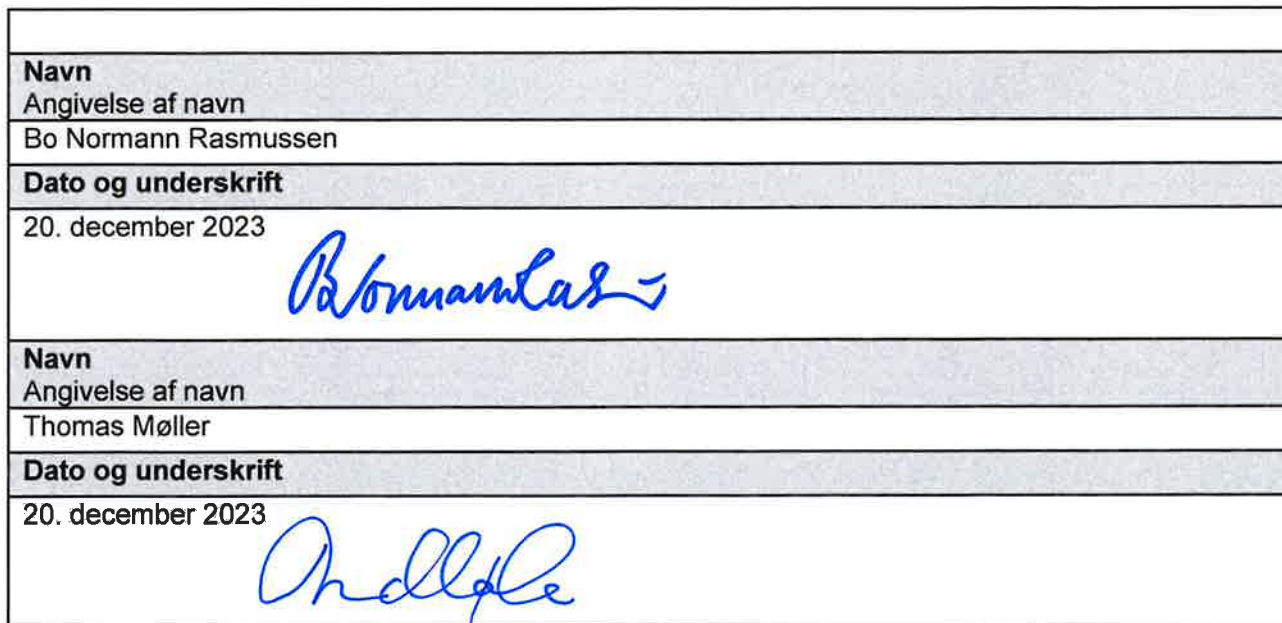 Navn
Angivelse af navn
Bo Normann Rasmussen
Dato og underskrift
20. december 2023
Navn
Angivelse af navn
Thomas Møller
Dato og underskrift
20. december 2023